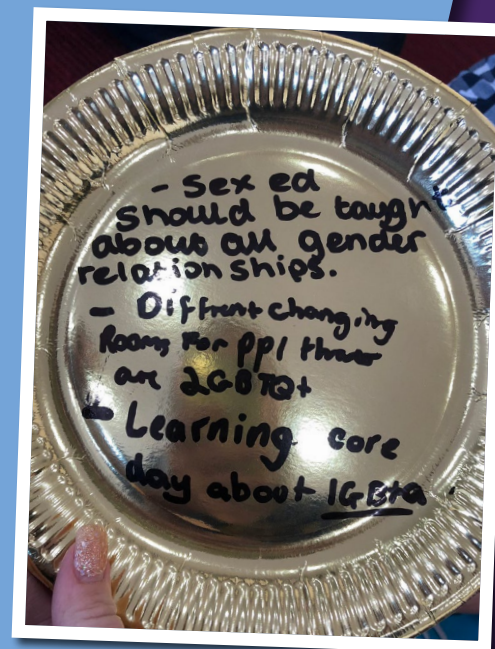 - Sex ed
should be taugh
about all gender
relationships.
- Diffrent changing
Rooms For ppl
are LGBTQ+
- Learning core
day about LGBTQ.